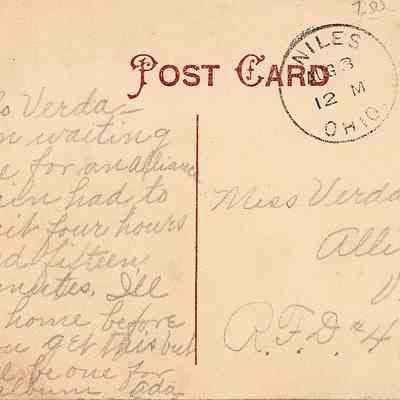 POST CARD
NILES
AUG 3
12 M
OHIO.
lo Verda -
n waiting
e for an alliance
ain had to
ait four hours
nd fifteen
inutes. Ill
home before
ou get this but
be one for
album. Ada
Miss Verda
Alli
R.F.D. #4